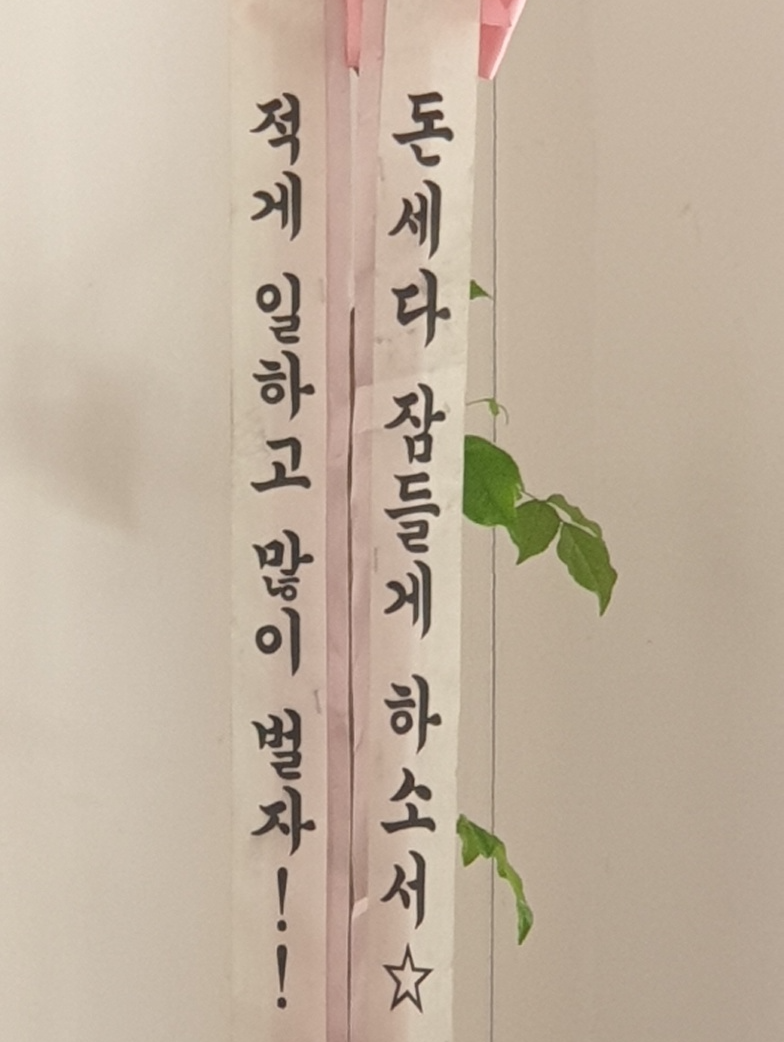 적게 일하고 많이 벌자!!
돈세다 잠들게 하소서☆